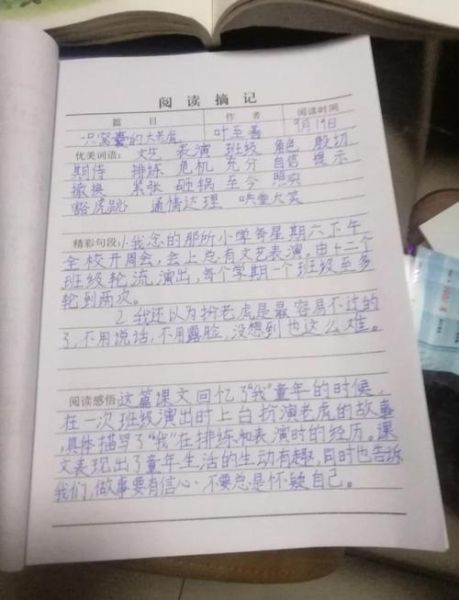 阅读摘记
篇 目 作 者 阅读时间
只窝囊的大老虎 叶至善 9月19日
优美词语: 文艺 表演 班级 角色 殷切
期待 排练 危机 充分 自信 提示
撤换 紧张 砸锅 至今 照实
豁虎跳 通情达理 哄堂大笑
精彩句段:1我念的那所小学每星期六下午
全校开周会,会上总有文艺表演。由十二个
班级轮流演出,每个学期一个班级至多
轮到两次。
2.我还以为扮老虎是最容易不过的
了,不用说话,不用露脸,没想到也这么难。
阅读感悟:这篇课文回忆了“我”童年的时候,
在一次班级演出时上台扮演老虎的故事
,具体描写了“我”在排练和表演时的经历。课
文表现出了童年生活的生动有趣,同时也告诉
我们,做事要有信心,不要总是怀疑自己。